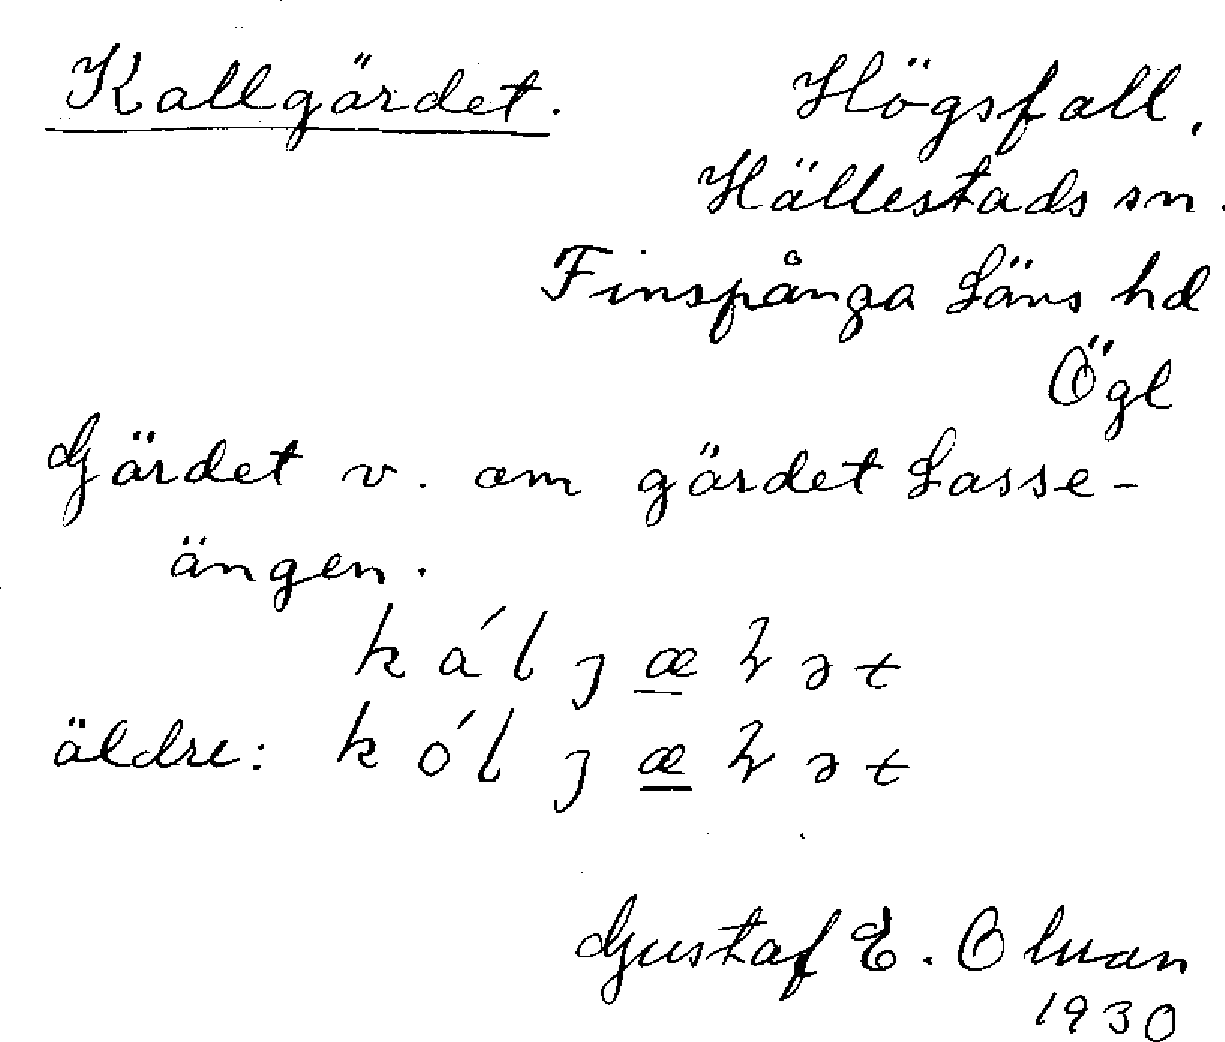 Kallgärdet. Högsfall,
Hällestads sn.
Finspånga Läns hd
Ögl
Gärdet v. om gärdet Lasse-
ängen.
kálȷæ̲ꝛət
äldre: kólȷæ̲ꝛət
Gustaf E.
1930